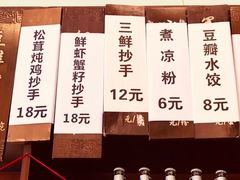 松茸炖鸡抄手
18元
鲜虾蟹籽抄手
18元
三鲜抄手
12元
煮凉粉
6元
豆瓣水饺
8元